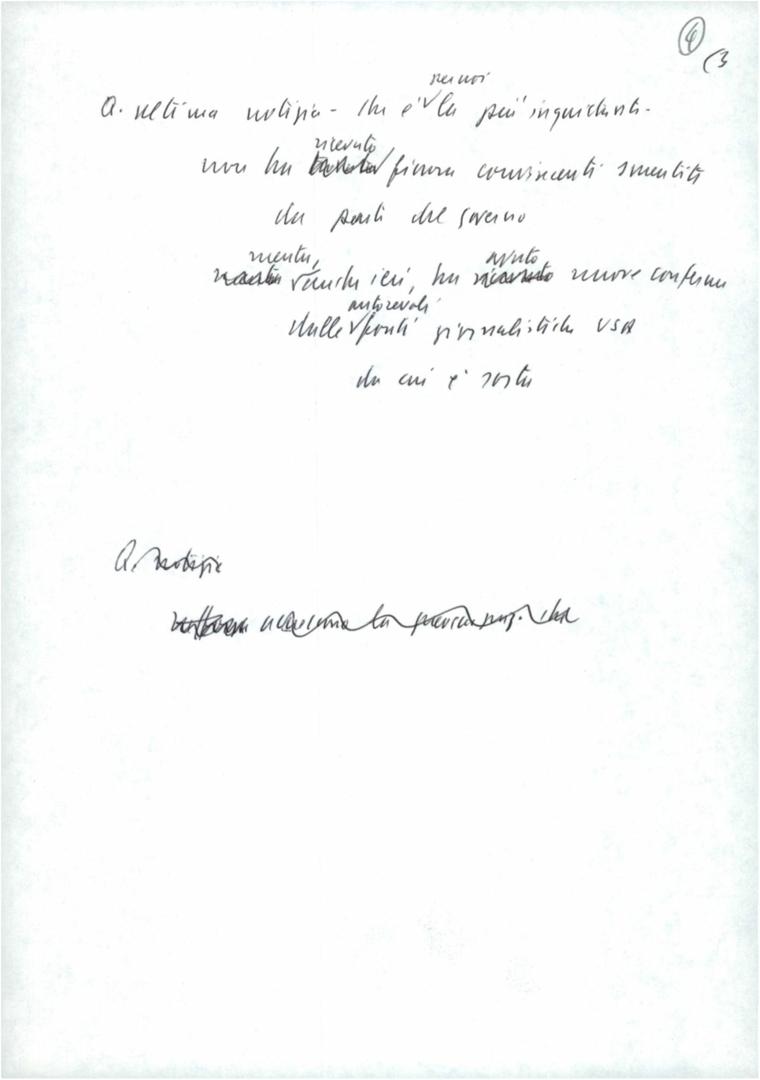 4
(3
per noi
Q. ultima notizia - che è la più inquietante -
ricevuto
non ha finora convincenti smentite
da parte del governo
mentre, avuto
anche ieri, ha ricevuto nuove conferme
autorevoli
dalle fonti giornalistiche USA
da cui è sorta
Q. notizia